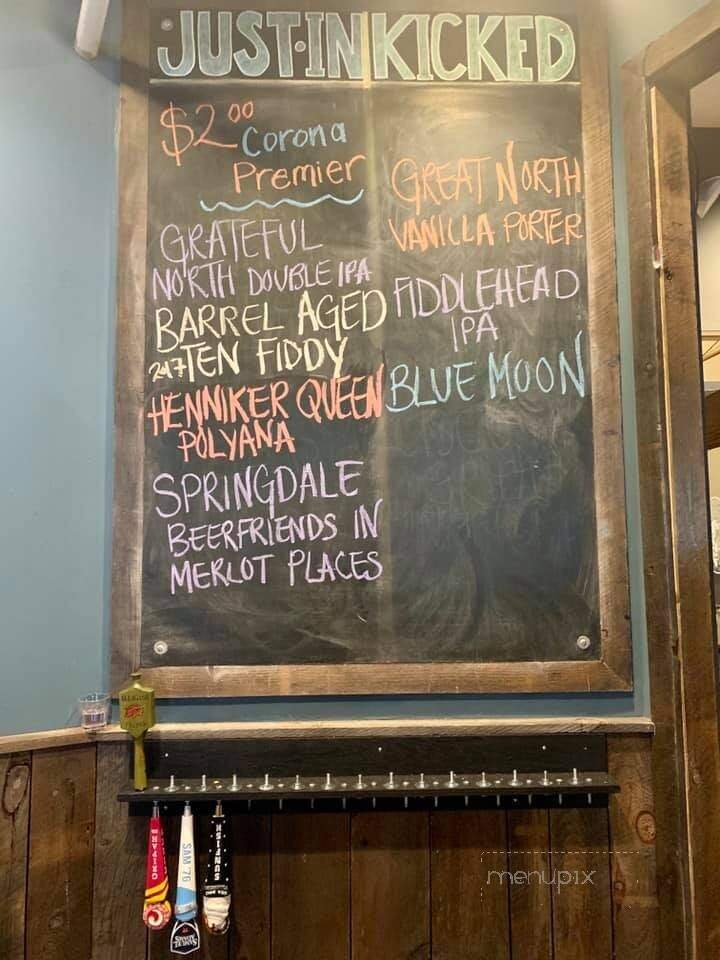 JUST·IN KICKED
$2.00 Corona
Premier
GRATEFUL
NORTH DOUBLE IPA
BARREL AGED
2017 TEN FIDDY
HENNIKER QUEEN
POLYANA
SPRINGDALE
BEERFRIENDS IN
MERLOT PLACES
GREAT NORTH
VANILLA PORTER
FIDDLEHEAD
IPA
BLUE MOON
SAM '76
SAMUEL
ADAMS
SUNFISH
menupix